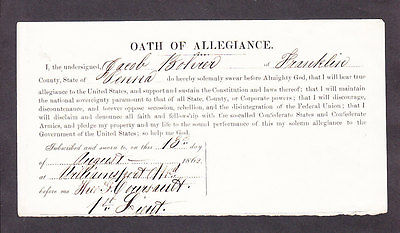 OATH OF ALLEGIANCE.
I, the undersigned, Jacob of Franklin
County, State of Penna do hereby solemnly swear before Almighty God, that I will bear true
allegiance to the United States, and support and sustain the Constitution and laws thereof; that I will maintain
the national sovereignty paramount to that of all State, County, or Corporate powers; that I will discourage,
discountenance, and forever oppose secession, rebellion, and the disintegration of the Federal Union; that I
will disclaim and denounce all faith and fellowship with the so-called Confederate States and Confederate
Armies, and pledge my property and my life to the sound performance of this my solemn allegiance to the
Government of the United States; so help me God.
Subscribed and sworn to, on this day
of August 1862,
at Williamsport Md
before me
1st Lieut.